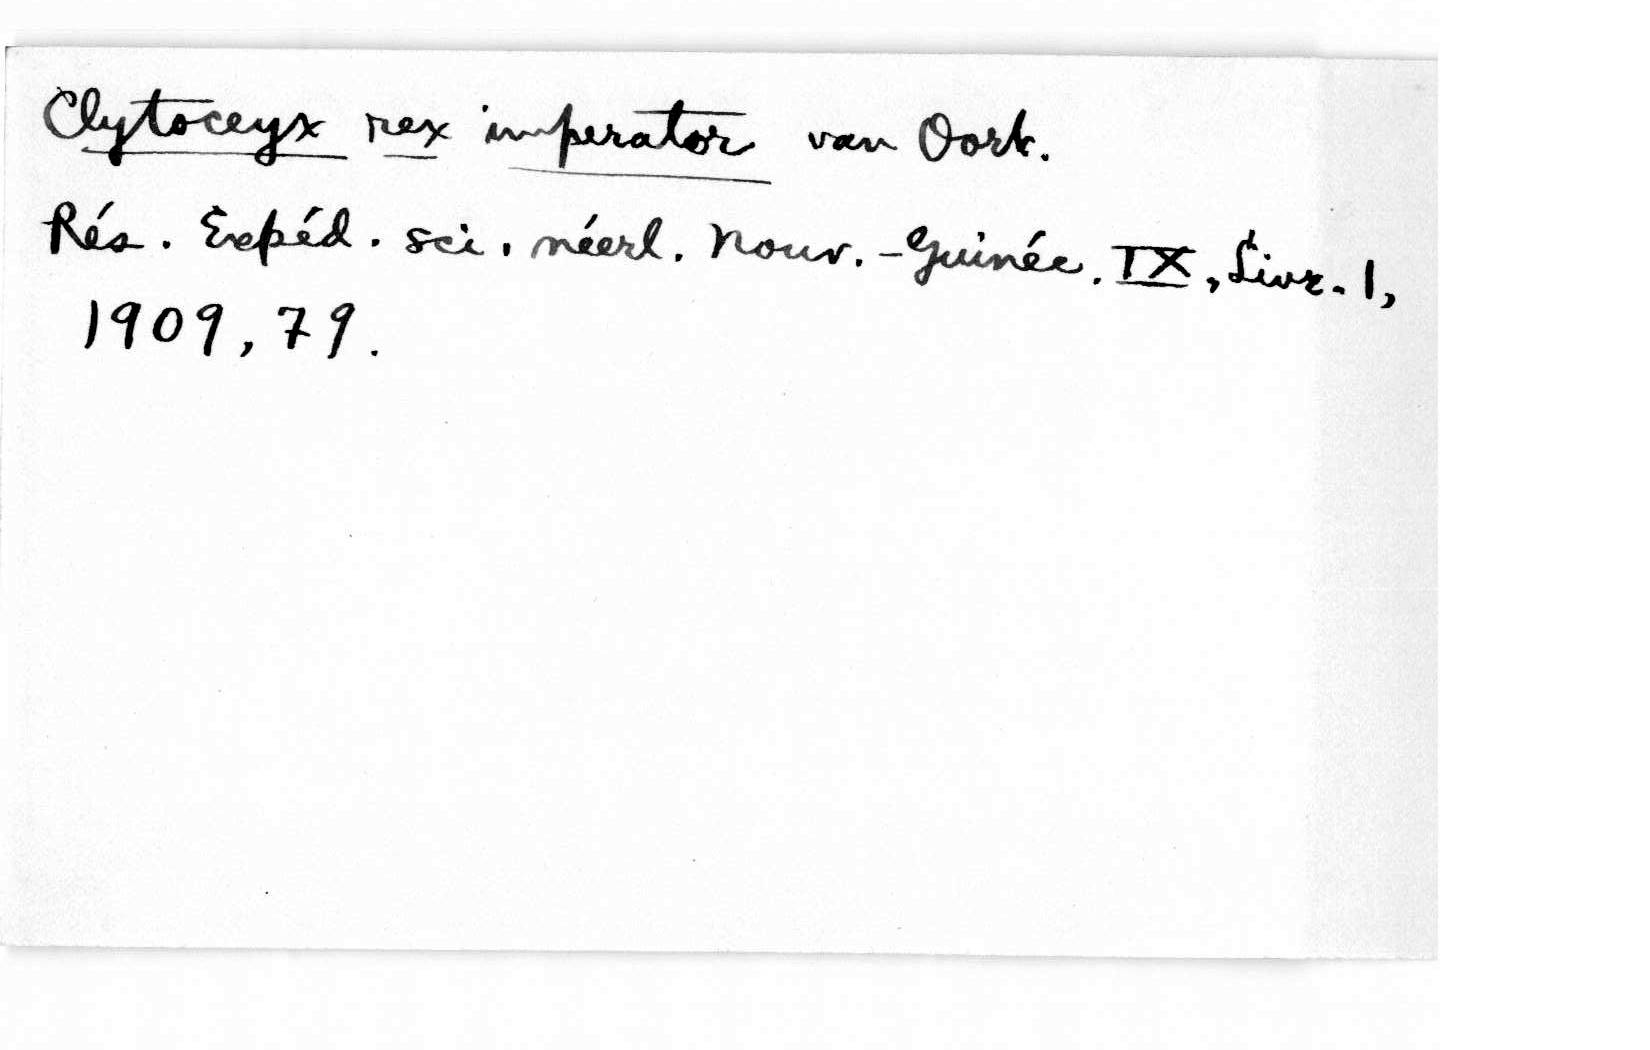 Clytoceyx rex imperator van Oort.
Rés. Expéd. sci. néerl. Nouv.-Guinée. IX, Livr. 1,
1909, 79.